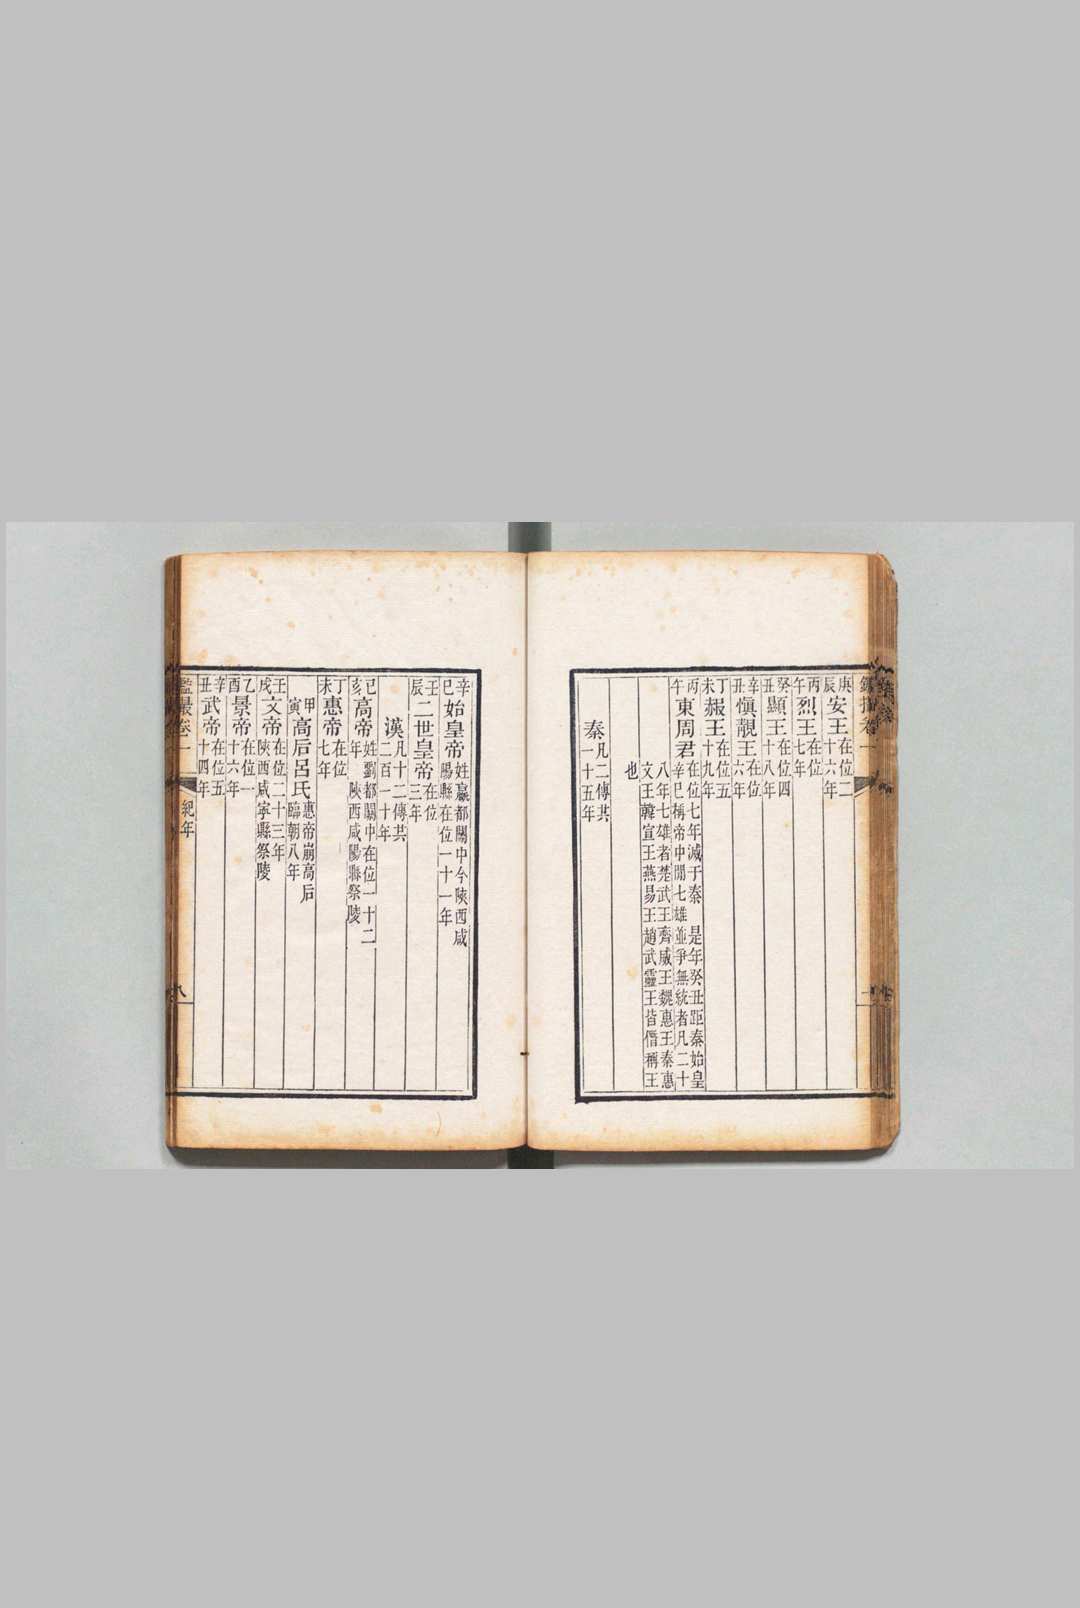 庚辰安王在位二十六年
丙午烈王在位七年
癸丑顯王在位四十八年
辛丑愼靚王在位六年
丁未赧王在位五十九年
丙午東周君在位七年滅于秦 是年癸丑距秦始皇辛巳稱帝中間七雄並爭無統者凡二十
八年七雄者楚武王齊威王魏惠王秦惠文王韓宣王燕易王趙武靈王皆僭稱王
也
秦凡二傳共一十五年
辛巳始皇帝姓嬴都關中今陝西咸陽縣在位一十一年
壬辰二世皇帝在位三年
漢凡十二傳共二百一十年
己亥高帝姓劉都關中在位一十二年 陝西咸陽縣祭陵
丁未惠帝在位七年
甲寅高后呂氏惠帝崩高后臨朝八年
壬戌文帝在位二十三年陝西咸寧縣祭陵
乙酉景帝在位一十六年
辛丑武帝在位五十四年
卷一 紀年